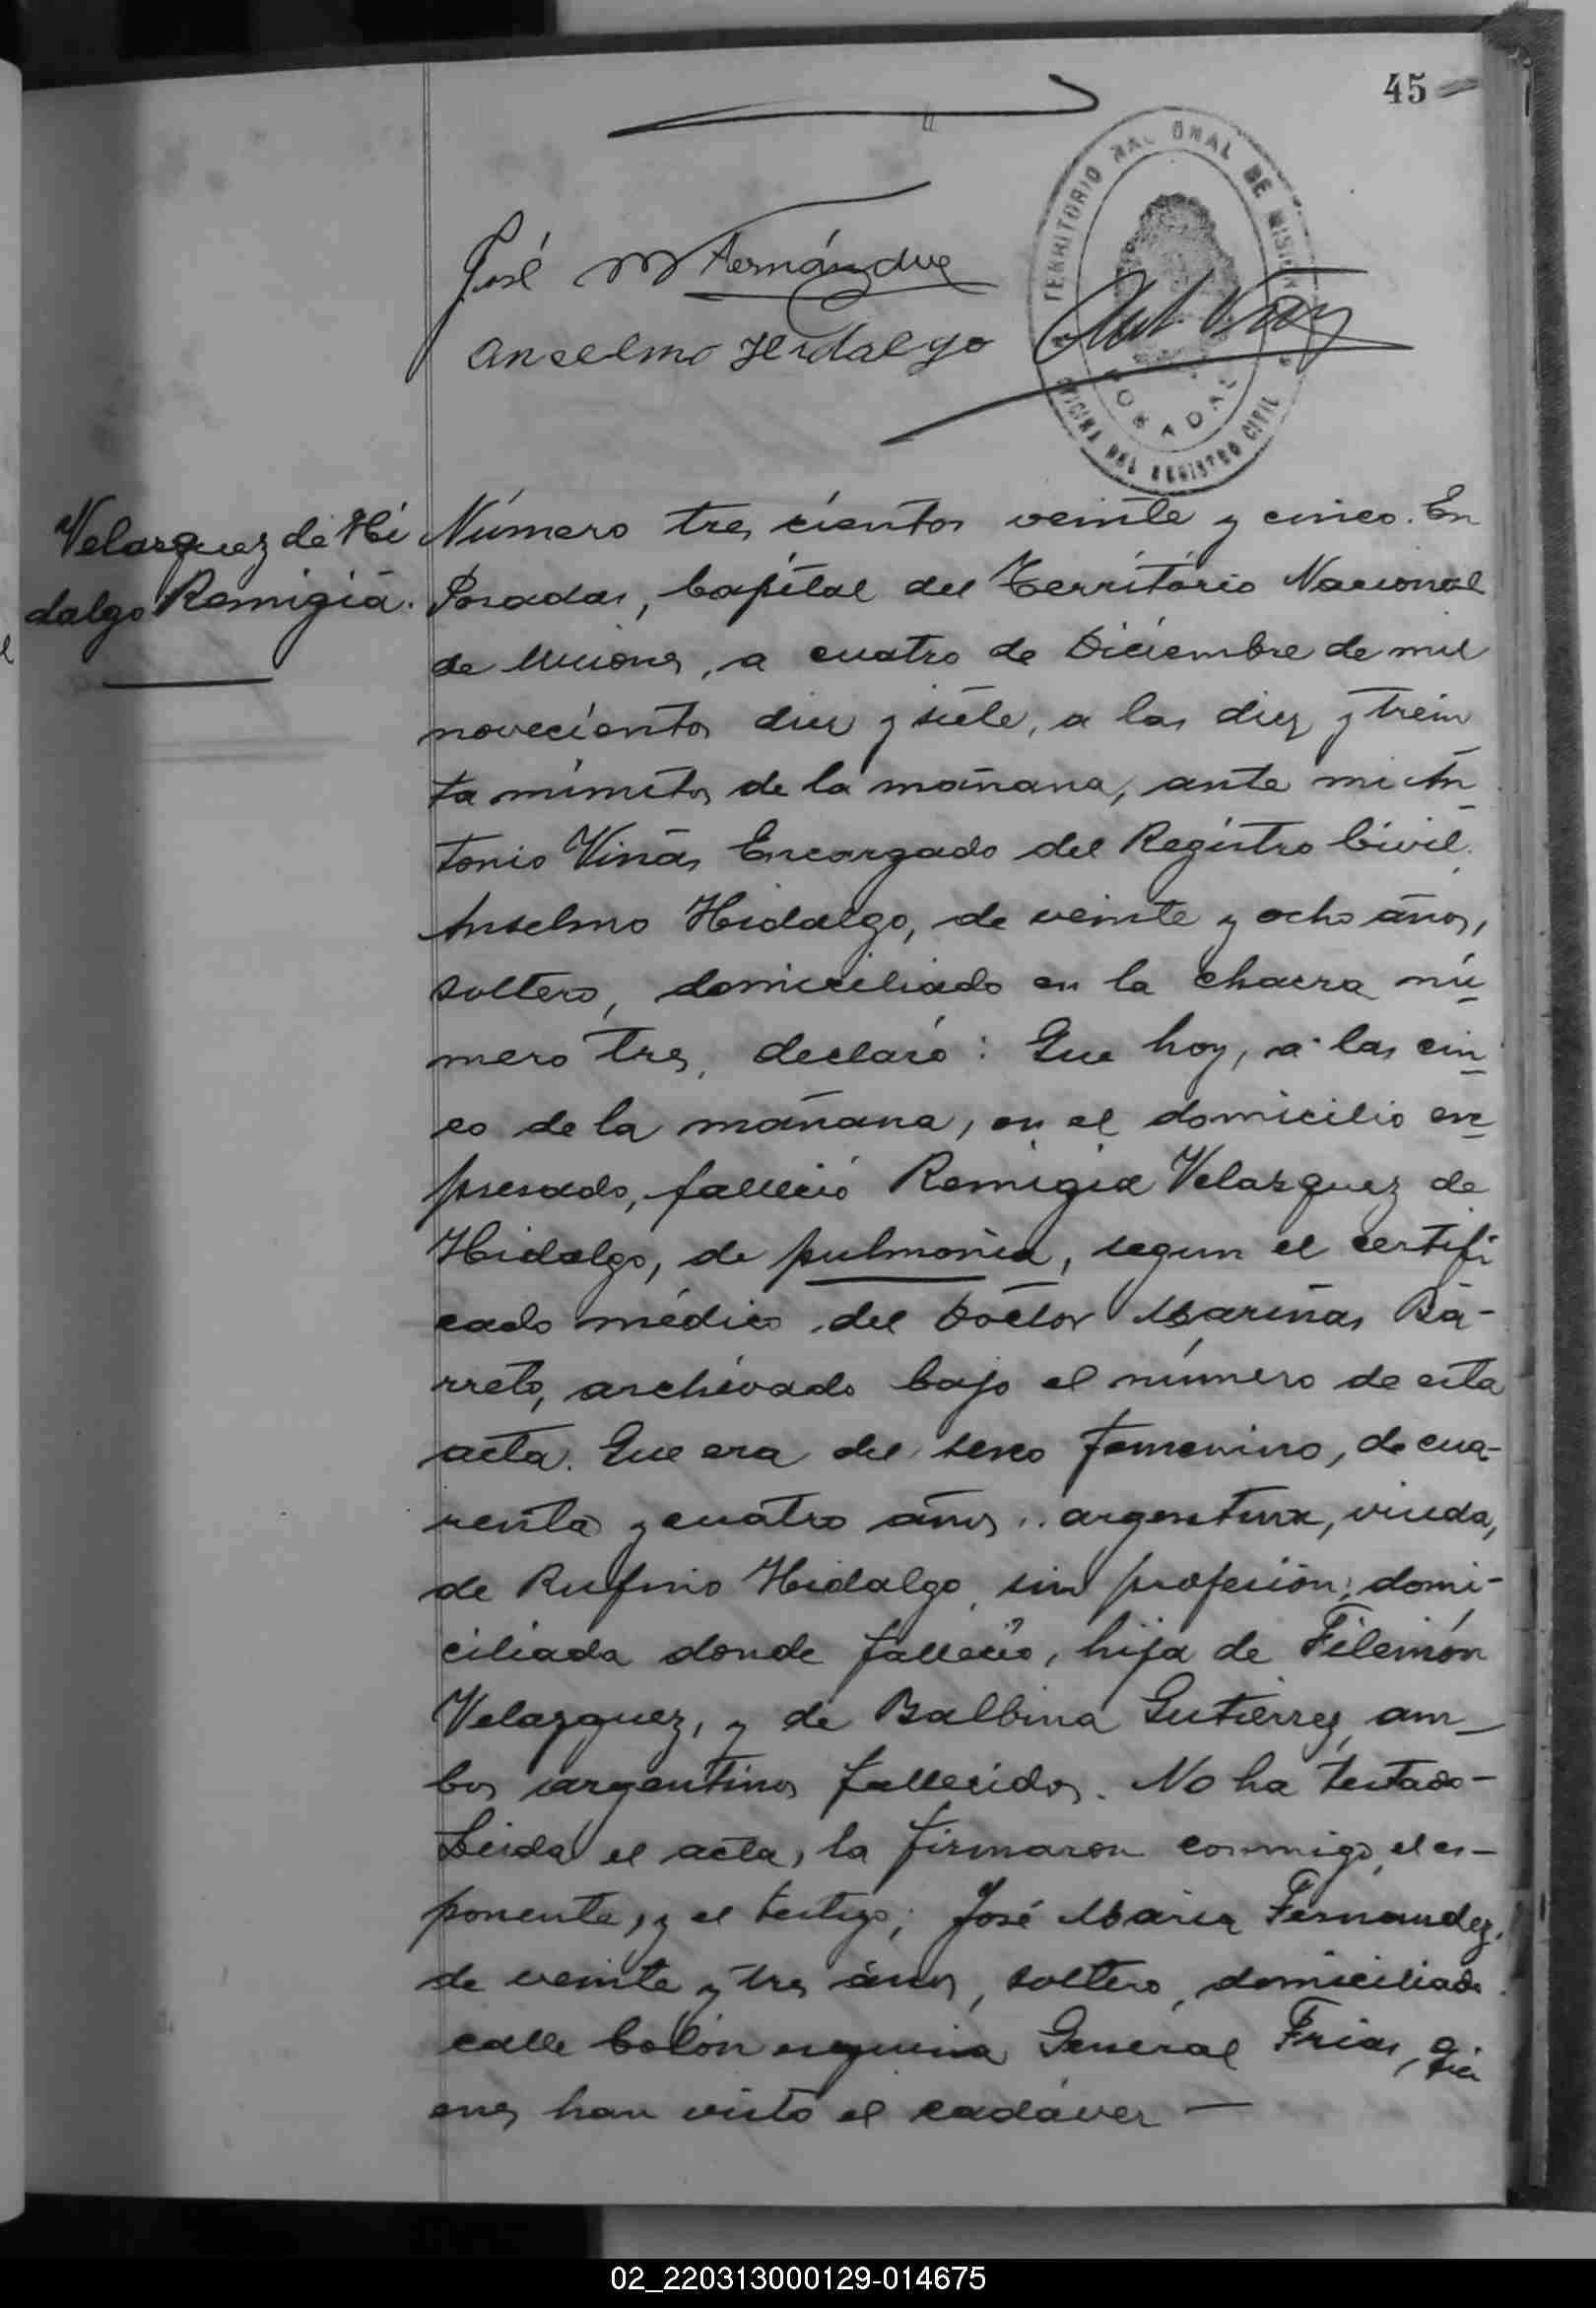 45
TERRITORIO NACIONAL DE MISIONES
POSADAS
OFICINA DEL REGISTRO CIVIL
José M Fernández
Anselmo Hidalgo
Velazquez de Hi
dalgo Remigia.
Número tres cientos veinte y cinco. En
Posadas, Capital del Território Nacional
de Misiones, a cuatro de Diciembre de mil
novecientos diez y siete, a las diez y trein
ta minutos de la mañana, ante mi An
tonio Viñas Encargado del Registro Civil.
Anselmo Hidalgo, de veinte y ocho años,
soltero, domiciliado en la chacra nú
mero tres, declaró: Que hoy, a las cin
co de la mañana, en el domicilio ex
presado, falleció Remigia Velazquez de
Hidalgo, de pulmonía, segun el certifi
cado médico del Doctor Mariñas Ba-
rreto, archivado bajo el número de esta
acta. Que era del sexo femenino, de cua-
renta y cuatro años, argentina, viuda,
de Rufino Hidalgo, sin profesión, domi-
ciliada donde falleció, hija de Filemón
Velazquez, y de Balbina Gutierrez, am-
bos argentinos fallecidos. No ha testado-
Leida el acta, la firmaron conmigo, el es-
ponente, y el testigo; José Maria Fernandez,
de veinte y tres años, soltero, domiciliado
calle Colón esquina General Frias, qui
enes han visto el cadáver —
02_220313000129-014675